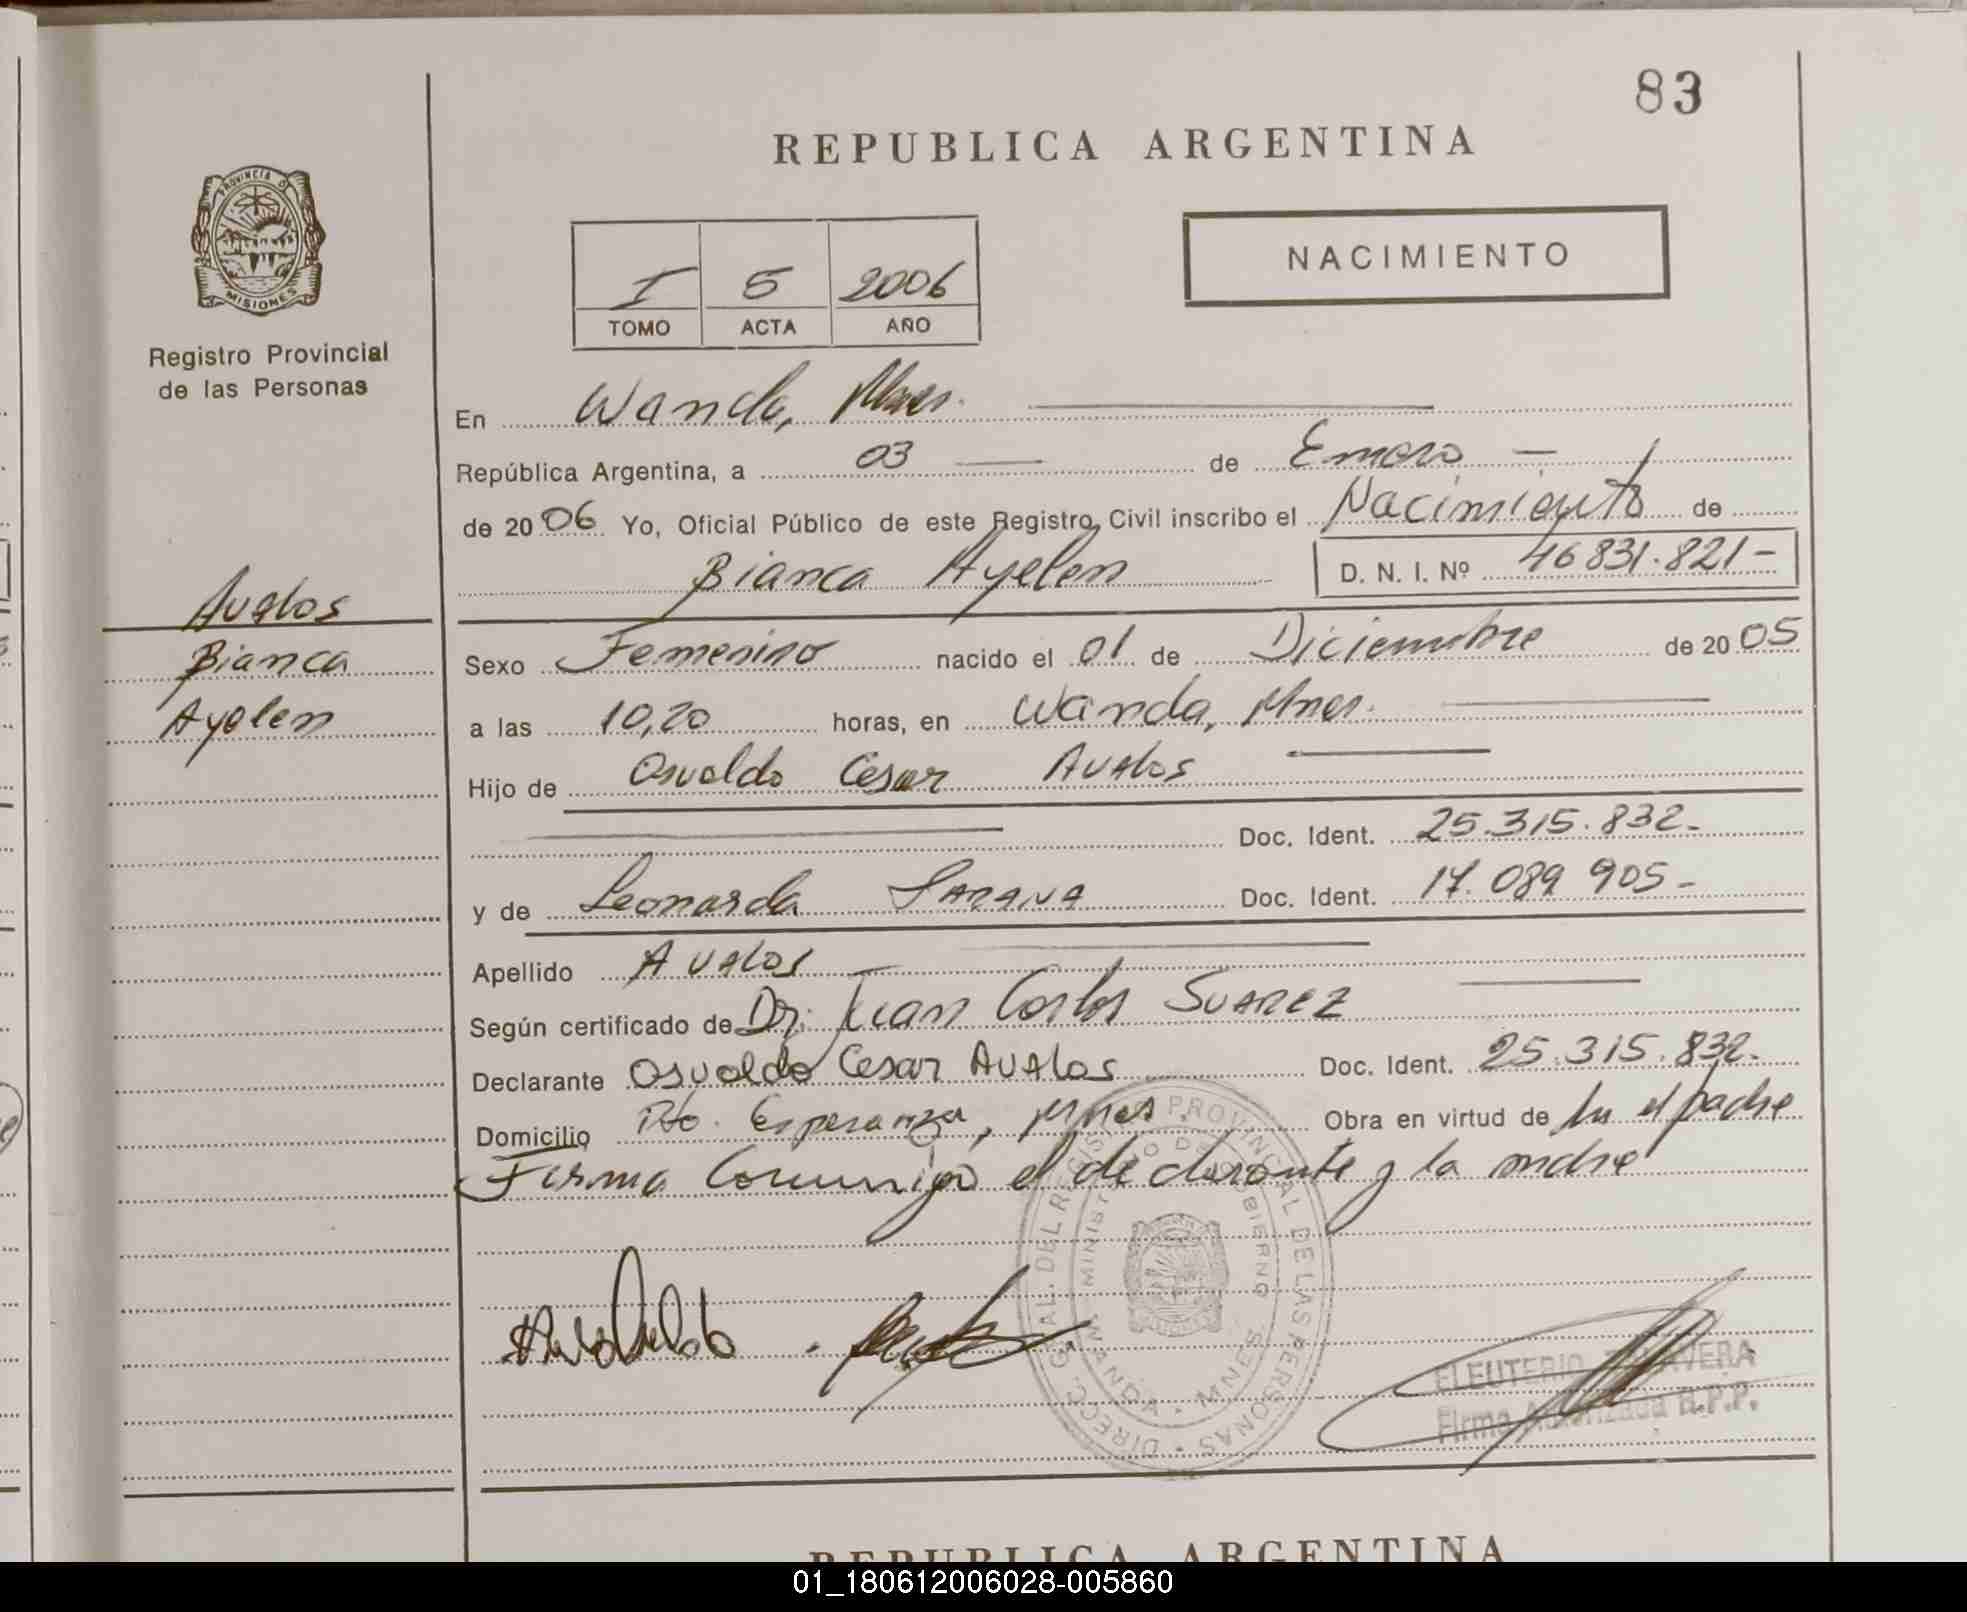 83
REPUBLICA ARGENTINA
PROVINCIA D
MISIONES
Registro Provincial
de las Personas
I 5 2006
TOMO ACTA AÑO
NACIMIENTO
En Wanda, Mnes.
República Argentina, a 03 de Enero
de 2006 Yo, Oficial Público de este Registro Civil inscribo el Nacimiento de
Bianca Ayelen D. N. I. Nº 46831.821-
Avalos
Bianca
Ayelen
Sexo Femenino nacido el 01 de Diciembre de 2005
a las 10,20 horas, en Wanda, Mnes.
Hijo de Osvaldo Cesar Avalos
Doc. Ident. 25.315.832-
y de Leonarda Doc. Ident. 17.089 905-
Apellido AVALOS
Según certificado de Dr. Juan Carlos SUAREZ
Declarante Osvaldo Cesar AVALOS Doc. Ident. 25.315.832-
Domicilio Pto. Esperanza, Mnes. Obra en virtud de el padre
Firma Conmigo el declarante y la madre
DIRECC. GRAL. DEL REGISTRO PROVINCIAL DE LAS PERSONAS
MINISTERIO DE GOBIERNO
WANDA - MNES
ELEUTERIO TALAVERA
Firma Autorizada R.P.P.
REPUBLICA ARGENTINA
01_180612006028-005860